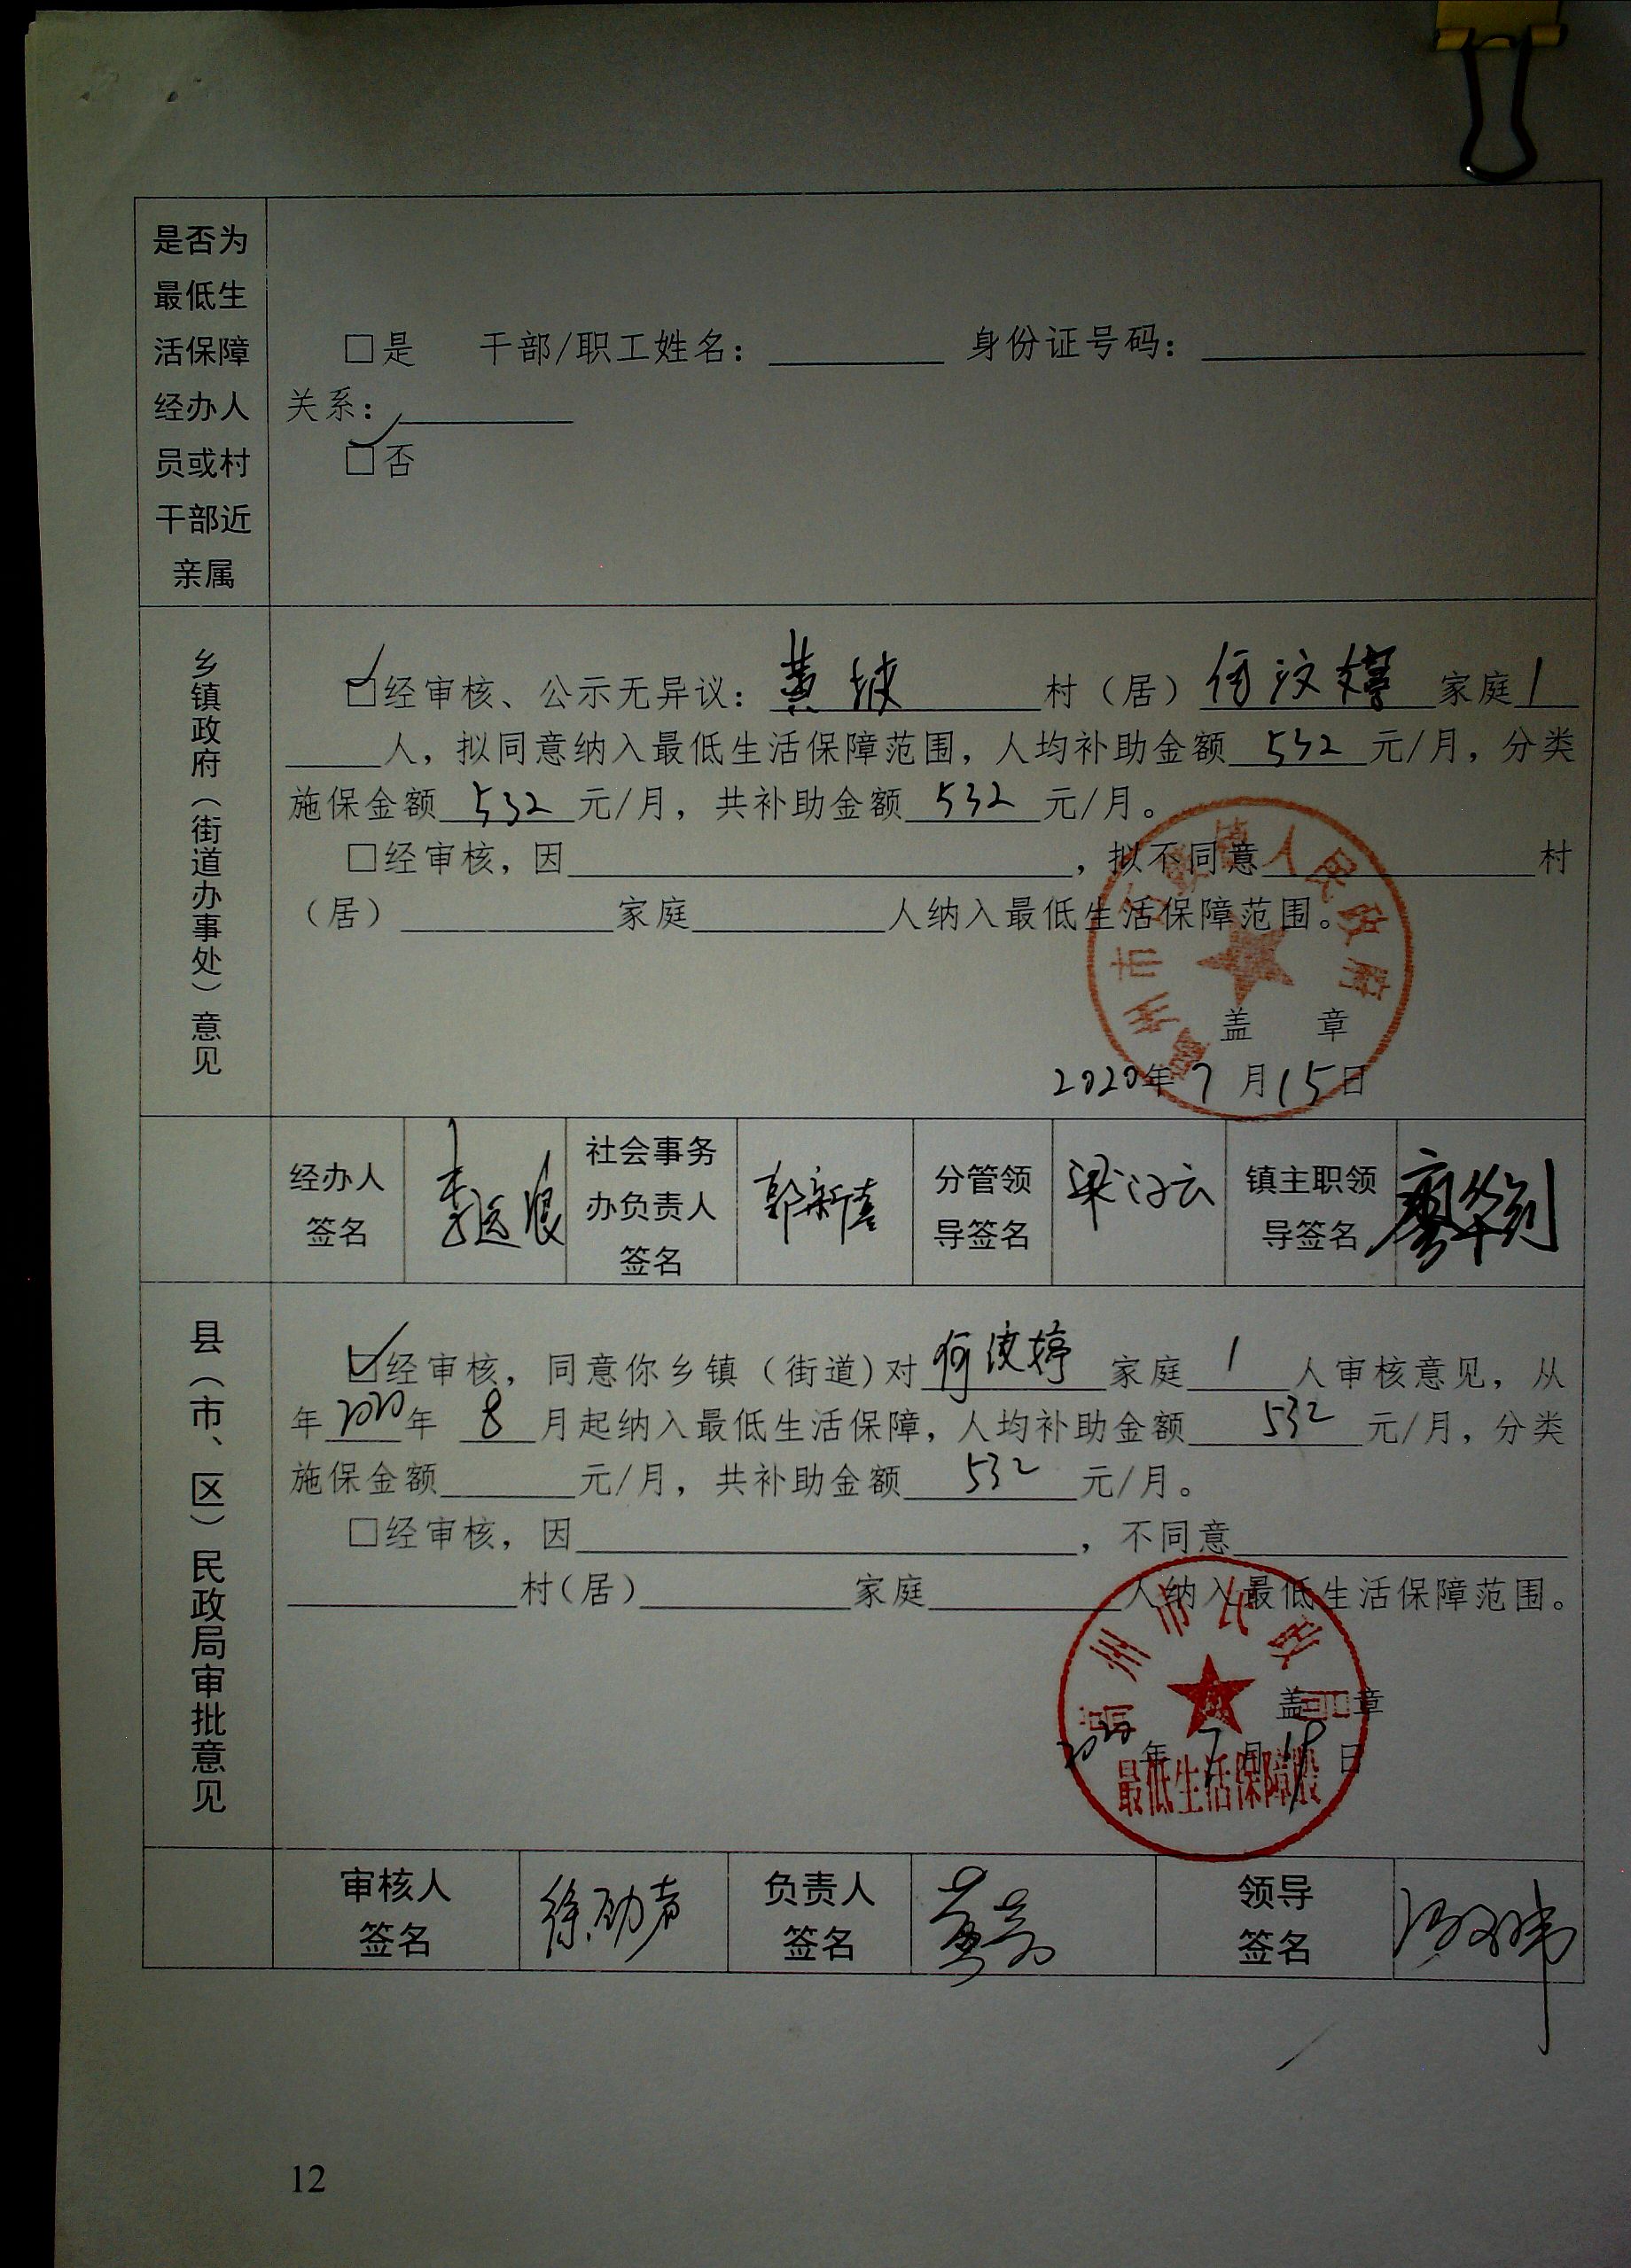 是否为
最低生
活保障
经办人
员或村
干部近
亲属
□是 干部/职工姓名：________ 身份证号码：________
关系：________
☑否
乡镇政府（街道办事处）意见
☑经审核、公示无异议：黄坡村（居）何汶婷家庭1
人，拟同意纳入最低生活保障范围，人均补助金额532元/月，分类
施保金额532元/月，共补助金额532元/月。
□经审核，因________，拟不同意________村
（居）________家庭________人纳入最低生活保障范围。
州市 人民政府
盖 章
2020年7月15日
经办人
签名
社会事务
办负责人
签名
郭新喜
分管领
导签名
镇主职领
导签名
县（市、区）民政局审批意见
☑经审核，同意你乡镇（街道）对何汶婷家庭1人审核意见，从
年2020年8月起纳入最低生活保障，人均补助金额532元/月，分类
施保金额________元/月，共补助金额532元/月。
□经审核，因________，不同意________
________村（居）________家庭________人纳入最低生活保障范围。
高州市民政局
盖 章
2020年7月 日
最低生活保障股
审核人
签名
负责人
签名
领导
签名
12